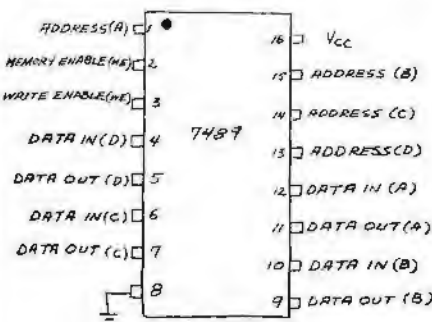 ADDRESS(A) 1
MEMORY ENABLE(ME) 2
WRITE ENABLE(WE) 3
DATA IN(D) 4
DATA OUT(D) 5
DATA IN(C) 6
DATA OUT(C) 7
8
7489
16 VCC
15 ADDRESS (B)
14 ADDRESS (C)
13 ADDRESS(D)
12 DATA IN(A)
11 DATA OUT(A)
10 DATA IN(B)
9 DATA OUT (B)